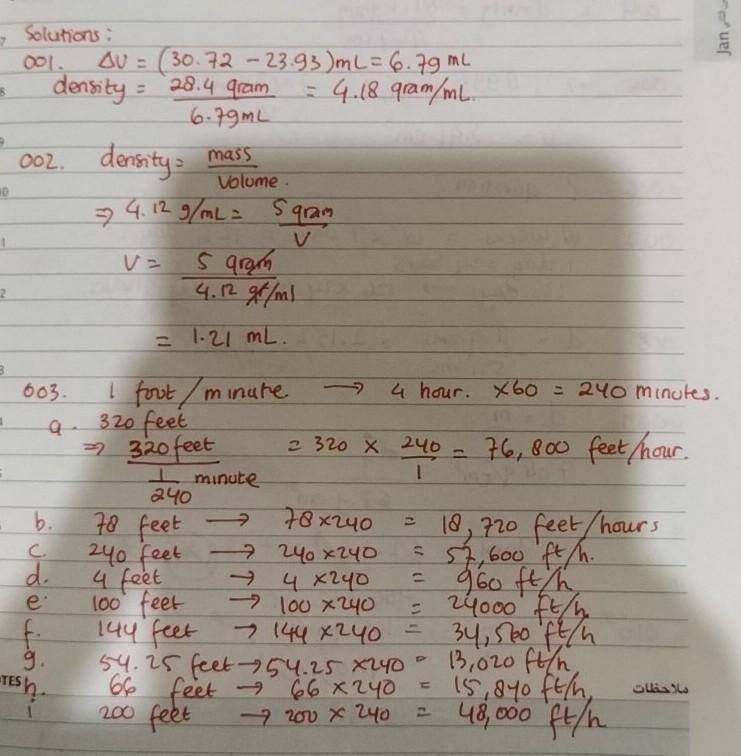 Jan يناير
Solutions:
001. ΔV = (30.72 - 23.93)mL = 6.79 mL
density = 28.4 gram / 6.79mL = 4.18 gram/mL.
002. density = mass / Volume.
⇒ 4.12 g/mL = 5 gram / V
V = 5 gram / 4.12 gr/ml
= 1.21 mL.
003. 1 foot/minute → 4 hour. ×60 = 240 minutes.
a. 320 feet
⇒ 320 feet / 1/240 minute = 320 × 240/1 = 76,800 feet/hour.
b. 78 feet → 78×240 = 18,720 feet/hours
c. 240 feet → 240×240 = 57,600 ft/h.
d. 4 feet → 4 ×240 = 960 ft/h
e. 100 feet → 100 ×240 = 24000 ft/h
f. 144 feet → 144 ×240 = 34,560 ft/h
g. 54.25 feet → 54.25 ×240 = 13,020 ft/h
TES h. 66 feet → 66 × 240 = 15,840 ft/h ملاحظات
i 200 feet → 200 × 240 = 48,000 ft/h